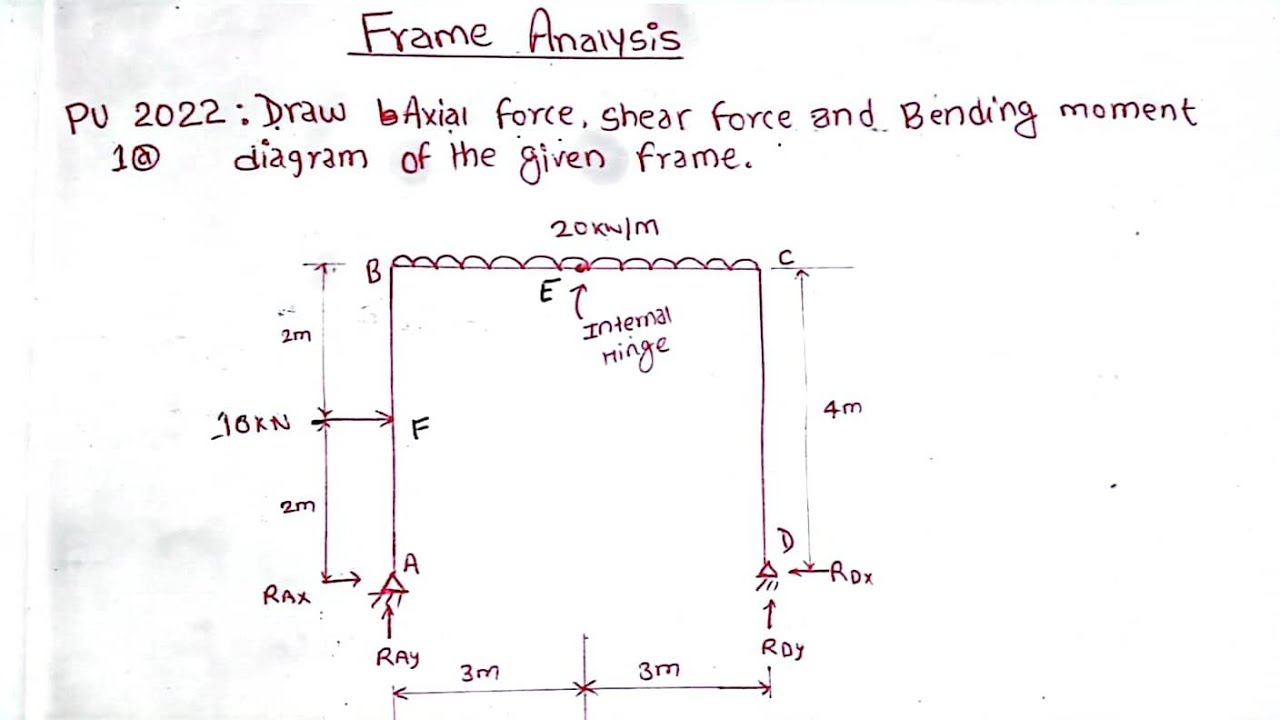 Frame Analysis
PU 2022: Draw Axial force, shear force and Bending moment
1@ diagram of the given frame.
20KN/M
B
C
E
Internal
Hinge
2m
4m
F
2m
D
A
RAX
RDX
RAY
RDY
3m
3m